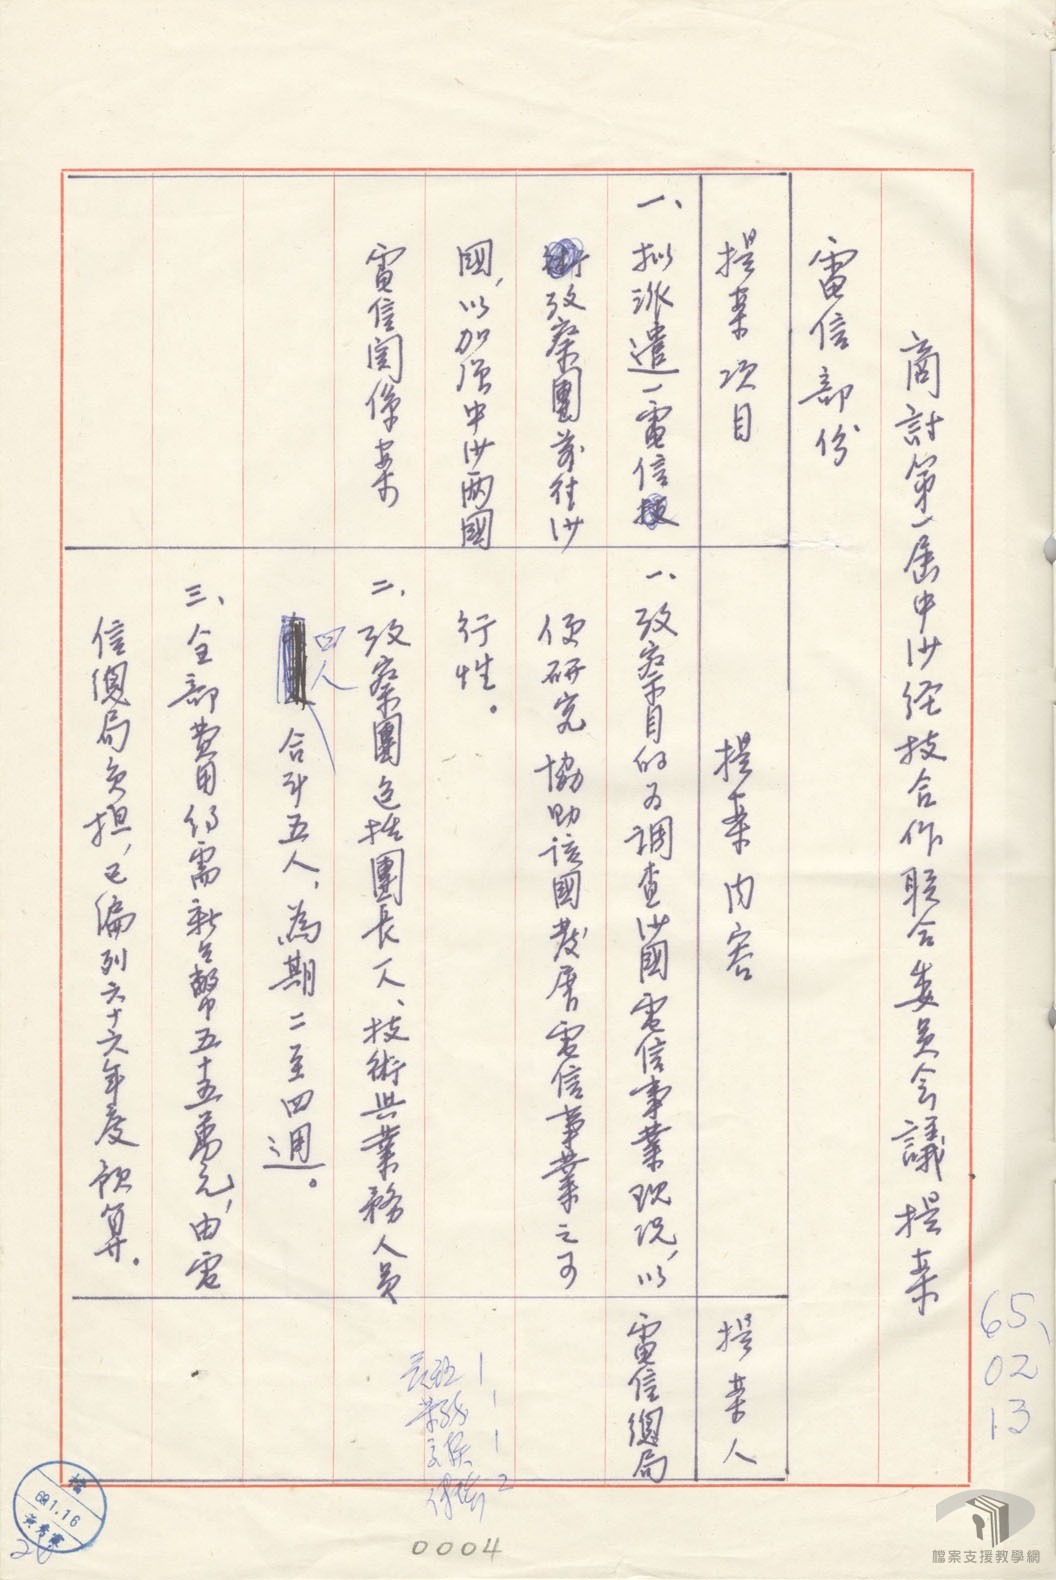 商討第一屆中沙経技合作联合委員会議提案
電信部份
提案項目
提案內容
提案人
一、拟派遣一電信
攷察團前往沙
國,以加强中沙两國
電信関係案
一、攷察目的为調查沙國電信事業現況,以
便研究協助該國發展電信事業之可
行性。
二、攷察團包括團長一人、技術与業務人員
四人
合計五人,為期二至四週。
三、全部費用約需新台幣五十五萬元,由電
信總局負担,已编列六十六年度預算。
電信總局
65、
02
13
1
1
1
2
檔
69.1.16
0004
檔案支援教學網